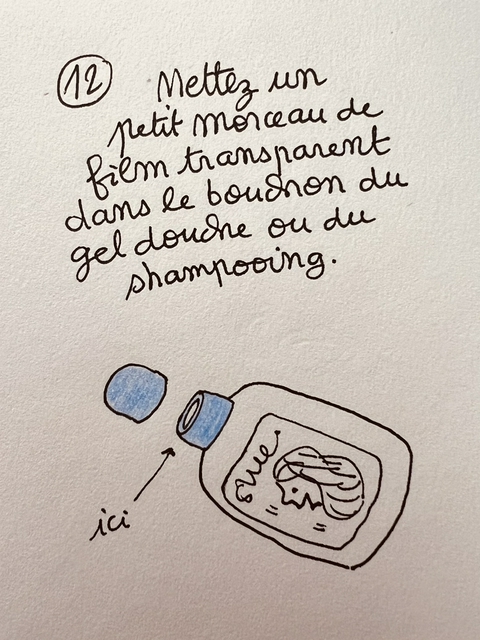 12 Mettez un
petit morceau de
film transparent
dans le bouchon du
gel douche ou du
shampooing.
ici